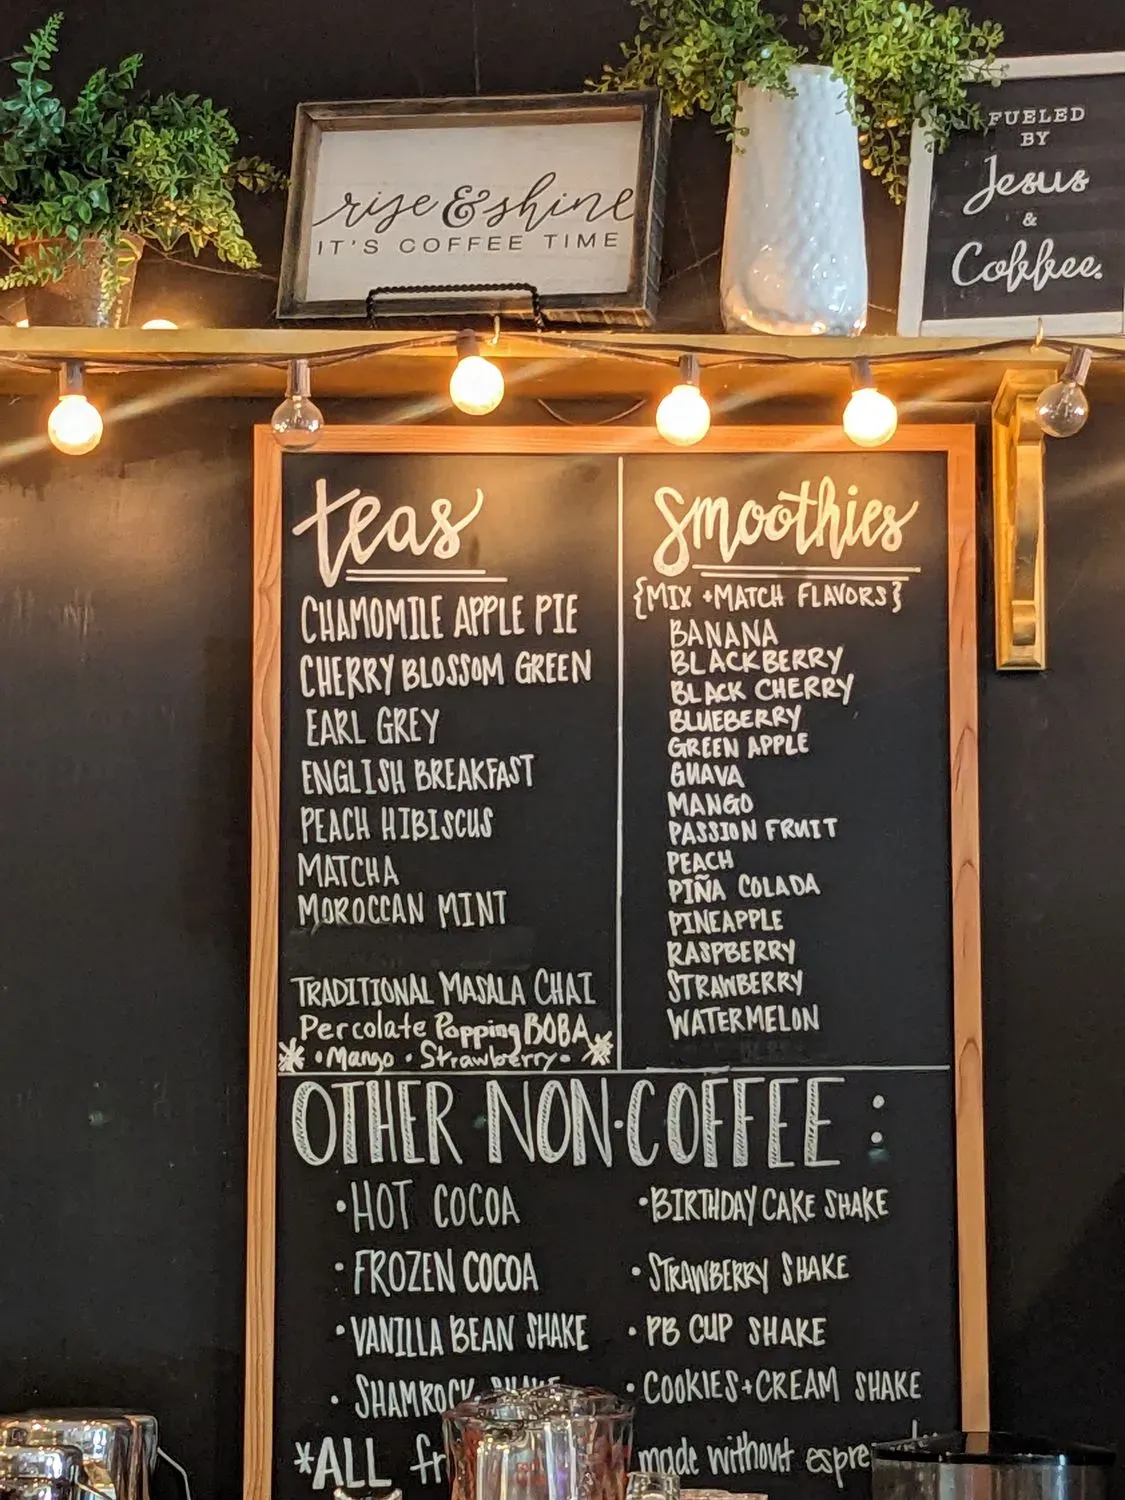 rise & shine
IT'S COFFEE TIME
FUELED
BY
Jesus
&
Coffee.
teas
CHAMOMILE APPLE PIE
CHERRY BLOSSOM GREEN
EARL GREY
ENGLISH BREAKFAST
PEACH HIBISCUS
MATCHA
MOROCCAN MINT
TRADITIONAL MASALA CHAI
Percolate Popping BOBA
•Mango • Strawberry•
Smoothies
{MIX + MATCH FLAVORS}
BANANA
BLACKBERRY
BLACK CHERRY
BLUEBERRY
GREEN APPLE
GUAVA
MANGO
PASSION FRUIT
PEACH
PIÑA COLADA
PINEAPPLE
RASPBERRY
STRAWBERRY
WATERMELON
OTHER NON-COFFEE :
•HOT COCOA
•FROZEN COCOA
•VANILLA BEAN SHAKE
•SHAMROCK SHAKE
•BIRTHDAY CAKE SHAKE
•STRAWBERRY SHAKE
•PB CUP SHAKE
•COOKIES+CREAM SHAKE
*ALL made without